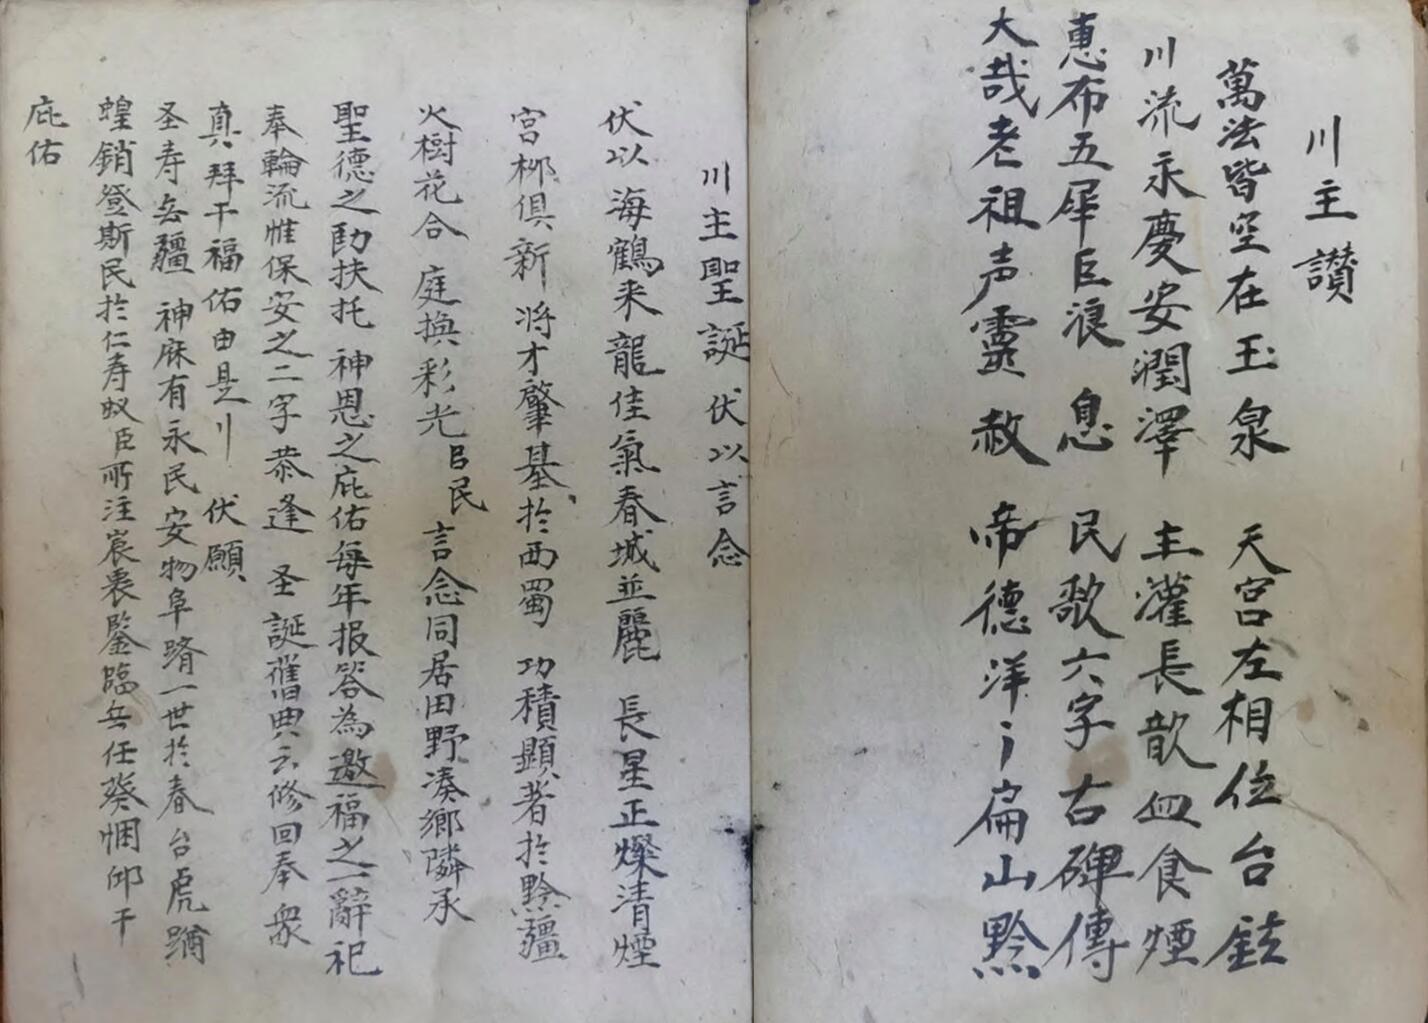 川主讚
萬法皆空在玉泉 天宮左相位台鉉
川流永慶安潤澤 主灌長歆血食煙
惠布五犀巨浪息 民歌六字古碑傳
大哉老祖声靈赦 帝德洋〻扁山黔
川主聖誕 伏以言念
伏以海鶴来龍佳氣春城並麗 長星正燦清煙
宮栁俱新 将才肇基於西蜀 功積顯者於黔疆
火樹花合 庭換彩光 吕民 言念同居田野凑鄉隣承
聖德之助扶托 神恩之庇佑每年报答為邀福之一辭祀
奉輪流惟保安之二字恭逢 圣誕舊典云修回奉衆
真拜干福佑由是川 伏願
圣寿旡疆 神庥有永民安物阜躋一世於春台虎躋
蝗銷登斯民於仁寿蚁臣所注宸衷鑒臨旡任葵悃仰干
庇佑